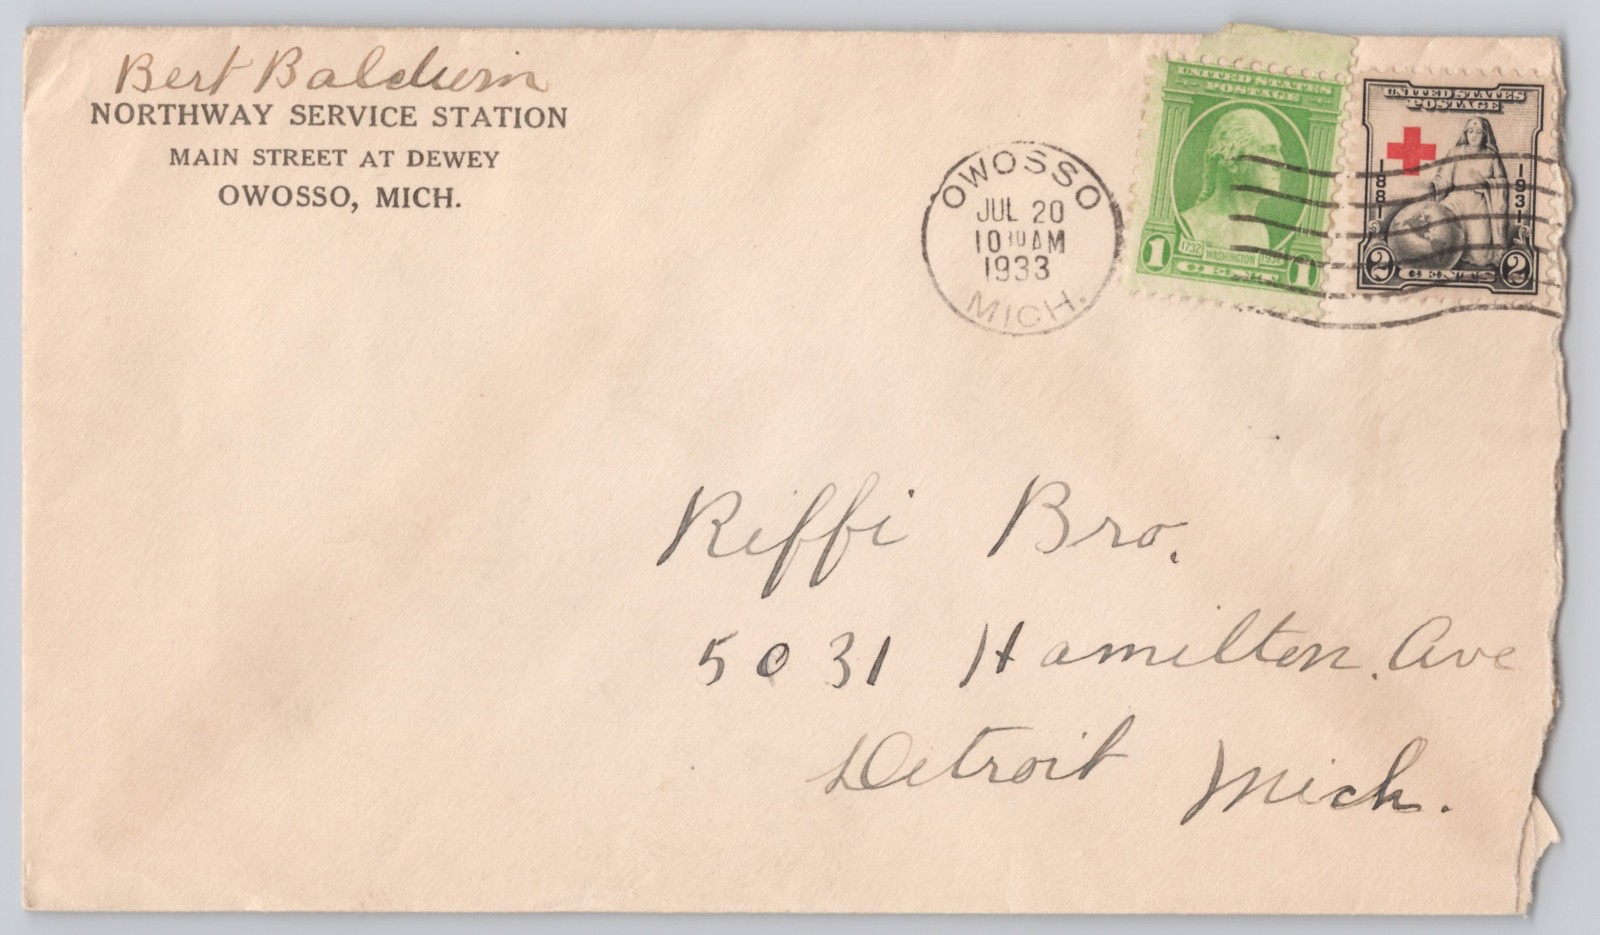 Bert Baldwin
NORTHWAY SERVICE STATION
MAIN STREET AT DEWEY
OWOSSO, MICH.
OWOSSO
JUL 20
10 30 AM
1933
MICH.
UNITED STATES
POSTAGE
1732 WASHINGTON 1932
1 CENT 1
UNITED STATES
POSTAGE
1881 1931
2 CENTS 2
Riffi Bro.
5031 Hamilton. Ave
Detroit Mich.